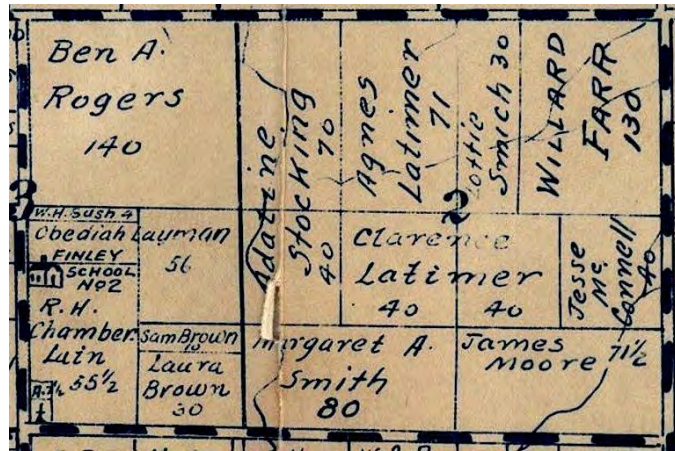 Ben A.
Rogers
140
Adaline
Stocking
70
40
Agnes
Latimer
71
Lottie
Smich 30
WILLARD
FARR
130
2
W.H. Sush 4
Obediah Layman
56
FINLEY
SCHOOL
No2
R. H.
Chamber
lain
55½
Sam Brown
10
Laura
Brown
30
Clarence
Latimer
40
40
Jesse
Mc.
Connell
40
Margaret A.
Smith
80
James
Moore 71½